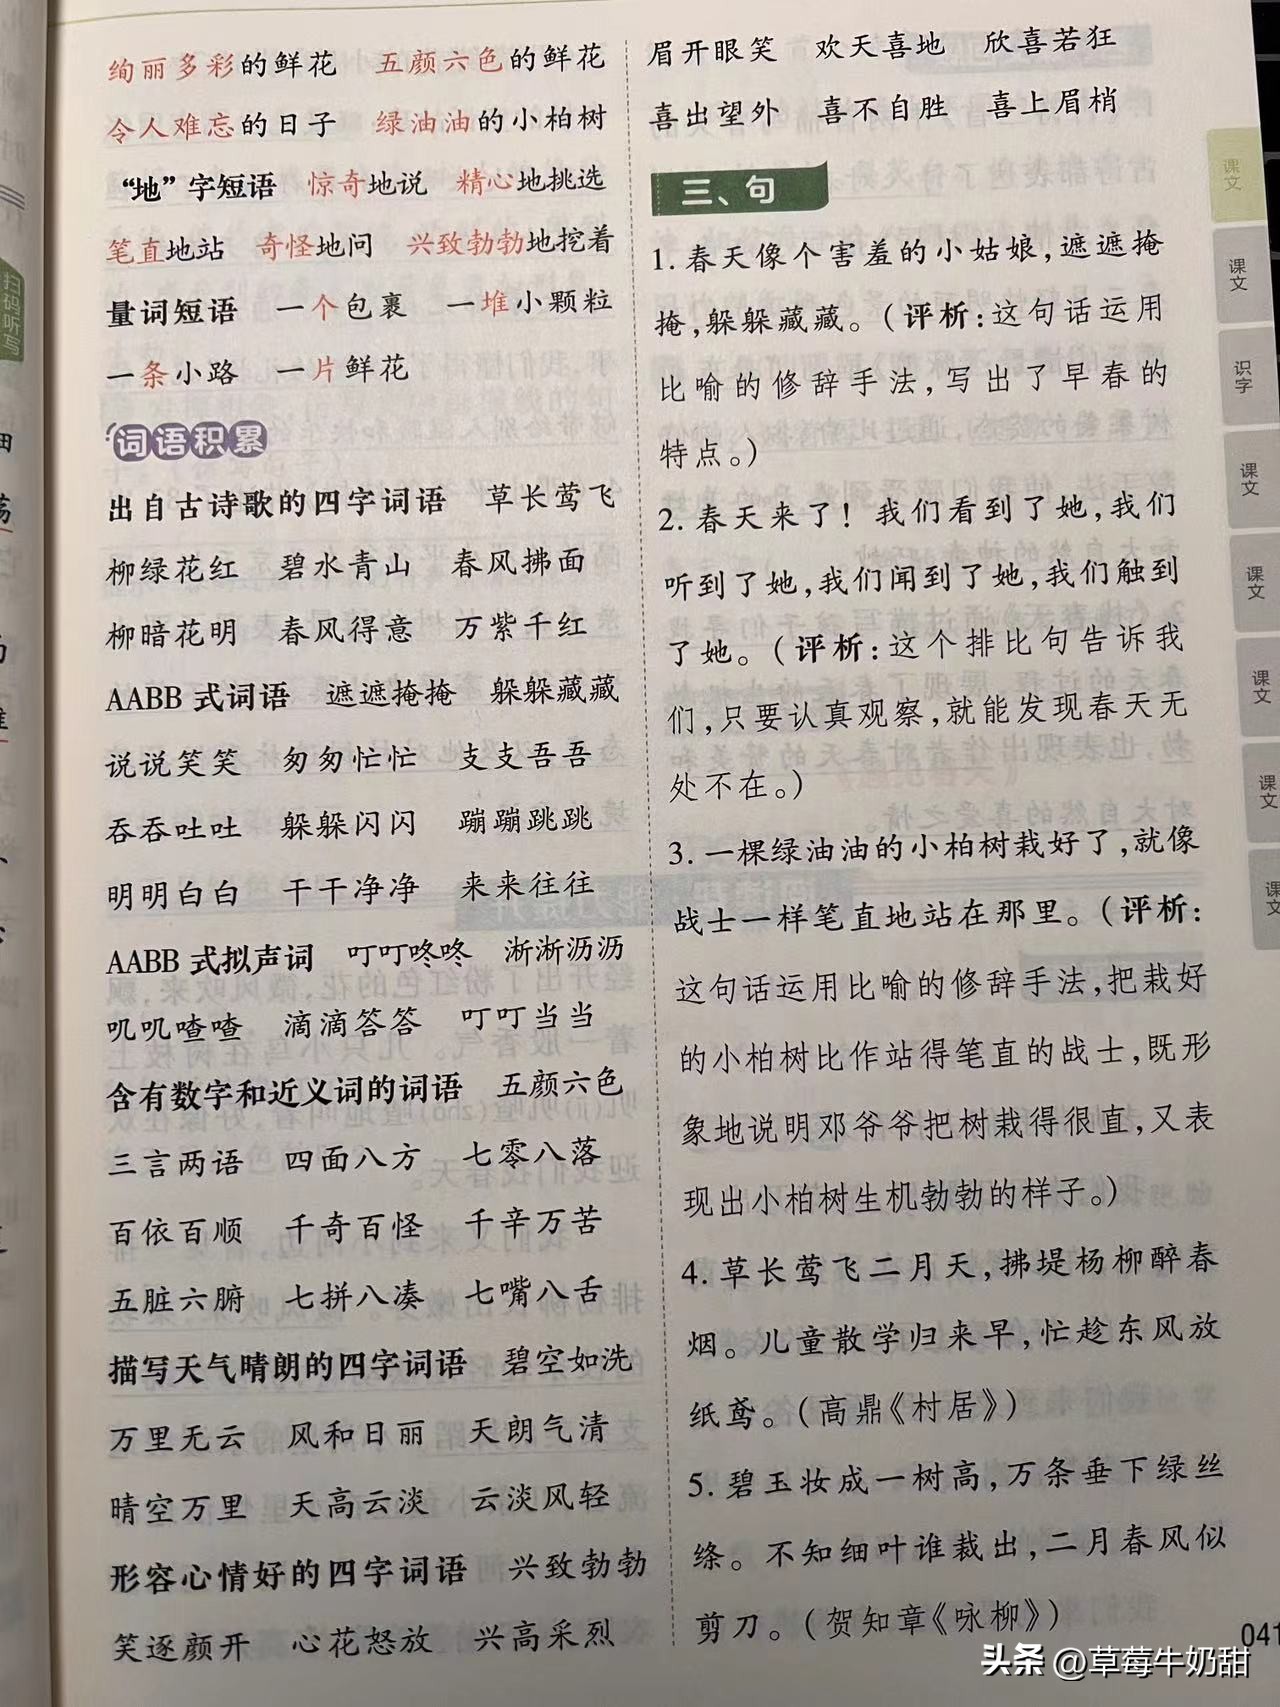 绚丽多彩的鲜花 五颜六色的鲜花
令人难忘的日子 绿油油的小柏树
“地”字短语 惊奇地说 精心地挑选
笔直地站 奇怪地问 兴致勃勃地挖着
量词短语 一个包裹 一堆小颗粒
一条小路 一片鲜花
词语积累
出自古诗歌的四字词语 草长莺飞
柳绿花红 碧水青山 春风拂面
柳暗花明 春风得意 万紫千红
AABB 式词语 遮遮掩掩 躲躲藏藏
说说笑笑 匆匆忙忙 支支吾吾
吞吞吐吐 躲躲闪闪 蹦蹦跳跳
明明白白 干干净净 来来往往
AABB 式拟声词 叮叮咚咚 淅淅沥沥
叽叽喳喳 滴滴答答 叮叮当当
含有数字和近义词的词语 五颜六色
三言两语 四面八方 七零八落
百依百顺 千奇百怪 千辛万苦
五脏六腑 七拼八凑 七嘴八舌
描写天气晴朗的四字词语 碧空如洗
万里无云 风和日丽 天朗气清
晴空万里 天高云淡 云淡风轻
形容心情好的四字词语 兴致勃勃
笑逐颜开 心花怒放 兴高采烈
眉开眼笑 欢天喜地 欣喜若狂
喜出望外 喜不自胜 喜上眉梢
三、句
1. 春天像个害羞的小姑娘,遮遮掩
掩,躲躲藏藏。(评析:这句话运用
比喻的修辞手法,写出了早春的
特点。)
2. 春天来了! 我们看到了她,我们
听到了她,我们闻到了她,我们触到
了她。(评析:这个排比句告诉我
们,只要认真观察,就能发现春天无
处不在。)
3. 一棵绿油油的小柏树栽好了,就像
战士一样笔直地站在那里。(评析:
这句话运用比喻的修辞手法,把栽好
的小柏树比作站得笔直的战士,既形
象地说明邓爷爷把树栽得很直,又表
现出小柏树生机勃勃的样子。)
4. 草长莺飞二月天,拂堤杨柳醉春
烟。儿童散学归来早,忙趁东风放
纸鸢。(高鼎《村居》)
5. 碧玉妆成一树高,万条垂下绿丝
绦。不知细叶谁裁出,二月春风似
剪刀。(贺知章《咏柳》)
课文
课文
识字
课文
课文
课文
课文
课文
扫码听写
041
头条 @草莓牛奶甜